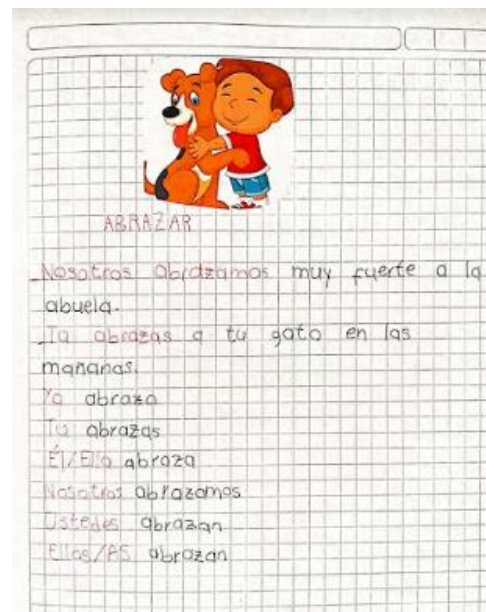 ABRAZAR
Nosotros abrazamos muy fuerte a la
abuela.
Tú abrazas a tu gato en las
mañanas.
Yo abrazo
Tú abrazas
Él/Ella abraza
Nosotros abrazamos
Ustedes abrazan
Ellos/AS abrazan